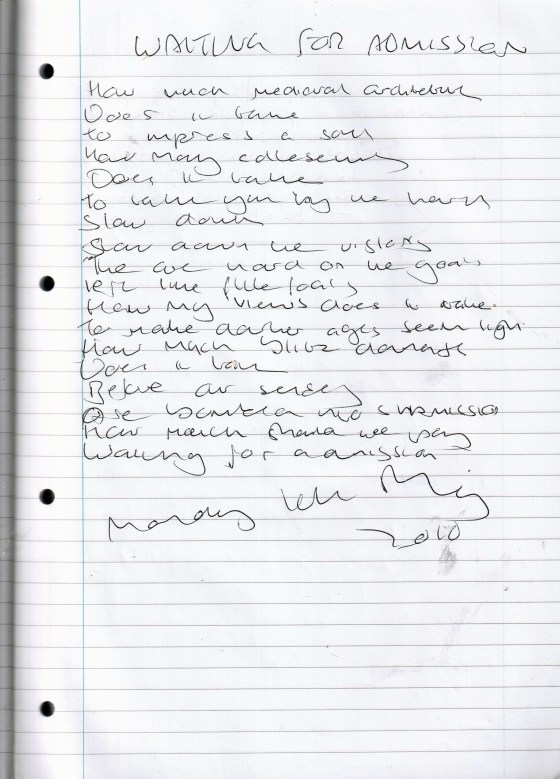 WAITING FOR ADMISSION
How much medieval architecture
Does it take
to impress a soul
How many
Does it take
To take you by the hand
Slow down
Slow down the visions
The are hard on the
left like
How my views does it take
To make darker ages seem light
How much blitz damage
Does it take
Before our senses
are bombed into submission
How much should we pay
Waiting for admission
2010